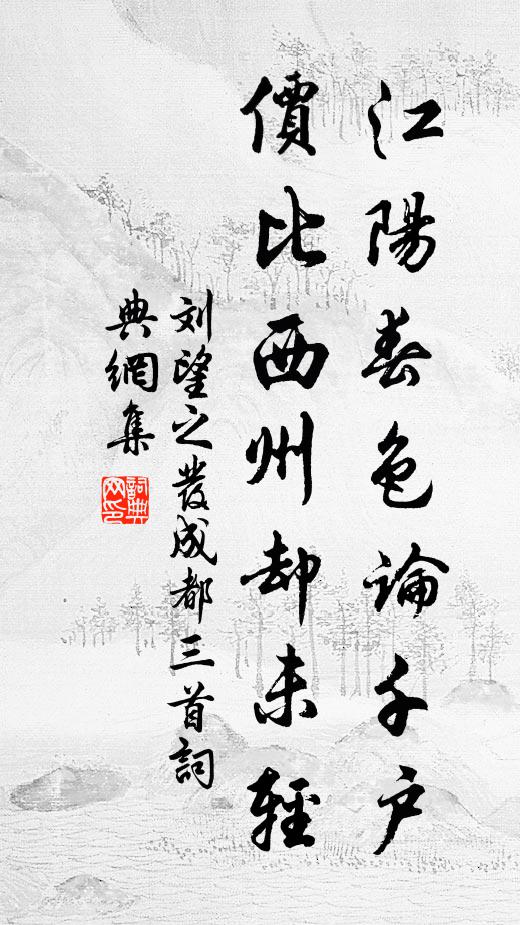 江陽春色論千户
價比西州却未輕
刘望之發成都三首詞
典網集
詞典网印